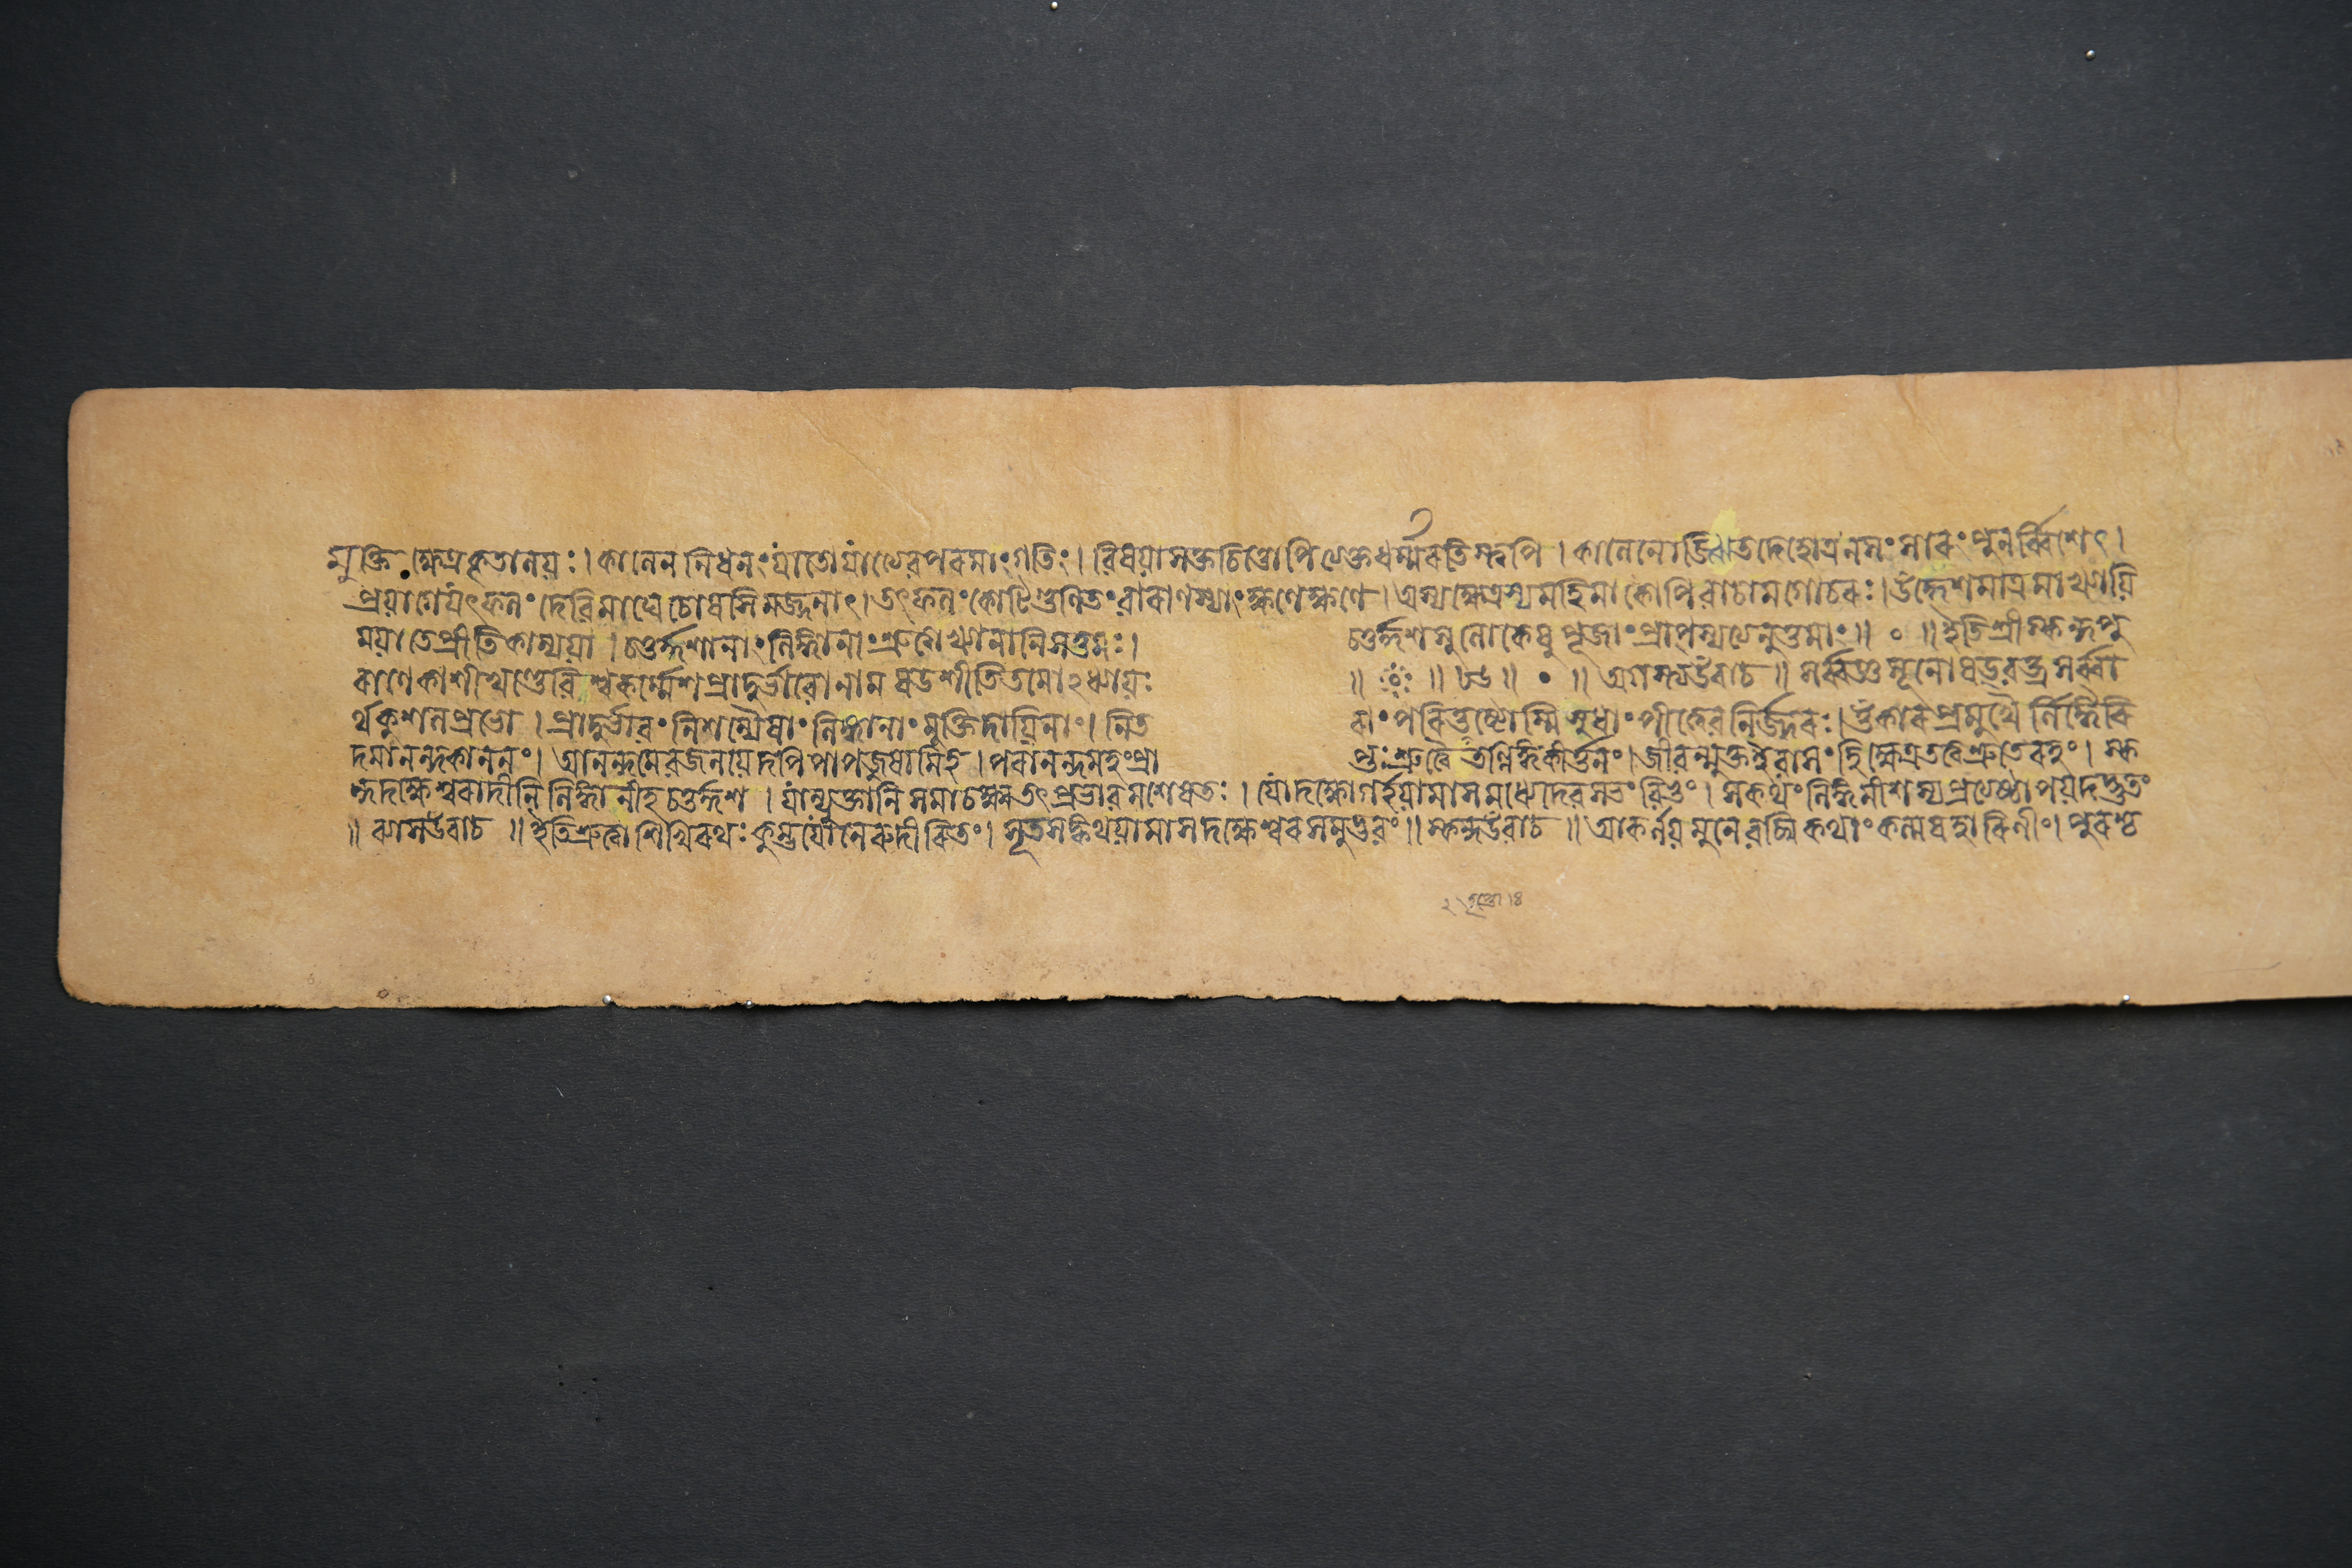 মুক্তি ক্ষেত্রকৃতালয়ঃ। কালেন নিধনংযাতোযাত্যেবপরমাংগতিং। বিষয়াসক্তচিত্তোপিত্যক্তধর্ম্মরতিস্ত্বপি। কালেনোজ্ঝিতদেহোত্রনসংসারংপুনর্ব্বিশেৎ।
প্রয়াগেযৎফলং দেবিমাঘে চোষসিমজ্জনাৎ।তৎফলংকোটিগুণিতংবারাণস্যাংক্ষণেক্ষণে। অস্যক্ষেত্রস্যমহিমাকোপিবাচামগোচরঃ।উদ্দেশমাত্রমাখ্যায়ি
ময়া তেপ্রীতিকাম্যয়া। চতুর্দ্দশানাং লিঙ্গানাং শ্রুত্বাখ্যানানিসত্তমঃ। চতুর্দ্দশসুলোকেষু পূজাং প্রাপ্স্যত্যনুত্তমাং॥ ০ ॥ ইতিশ্রীস্কন্দপু
রাণেকাশীখণ্ডেবিশ্বকর্ম্মেশপ্রাদুর্ভাবোনাম ষডশীতিতমোঽধ্যায়ঃ ॥ ॥ ৮৬॥ ॥ অগস্ত্যউবাচ॥ সর্ব্বজ্ঞসূনোষড্বক্ত্রসর্ব্বা
র্থকুশলপ্রভো। প্রাদুর্ভাবংনিশম্যৈষাংলিঙ্গানাংমুক্তিদায়িনাং। নিত রাংপরিতৃপ্তোস্মিসুধাংপীত্বেবনির্জ্জরঃ।ওঁকারপ্রমুখৈর্লিঙ্গৈরি
দমানন্দকাননং। আনন্দমেবজনয়েদপিপাপজুষামিহ। পরানন্দমহংপ্রা প্তঃশ্রুত্বৈতল্লিঙ্গকীর্ত্তনং।জীবন্মুক্তইবাসংহিক্ষেত্রতত্ত্বশ্রুতেরহং। স্ক
ন্দদক্ষেশ্বরাদীনিলিঙ্গানীহচতুর্দ্দশ। যান্যুক্তানিসমাচক্ষ্বতৎপ্রভাবমশেষতঃ। যোদক্ষোগর্হয়ামাসমধ্যেদেবসভংবিভুং। সকথংলিঙ্গমীশস্যপ্রত্যষ্ঠাপয়দদ্ভুতং
॥ ব্যাসউবাচ॥ ইতিশ্রুত্বাশিখিরথঃকুম্ভযোনেরুদীরিতং। সূতসঙ্কথয়ামাসদক্ষেশ্বরসমুদ্ভবং॥ স্কন্দউবাচ॥ আকর্ণয়মুনেবচ্মিকথাংকল্মষহারিণীং।পুরশ্চ